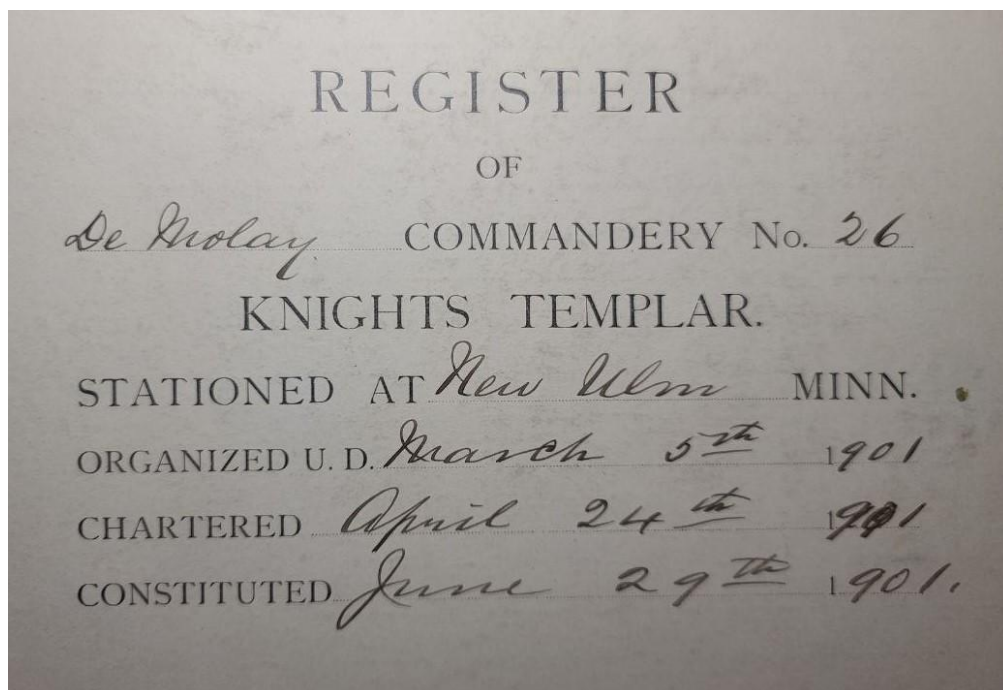 REGISTER
OF
De Molay COMMANDERY No. 26
KNIGHTS TEMPLAR.
STATIONED AT New Ulm MINN.
ORGANIZED U. D. March 5th 1901
CHARTERED April 24th 1901
CONSTITUTED June 29th 1901.